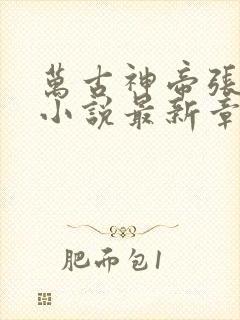 萬古神帝張
小說最新章
肥而包1